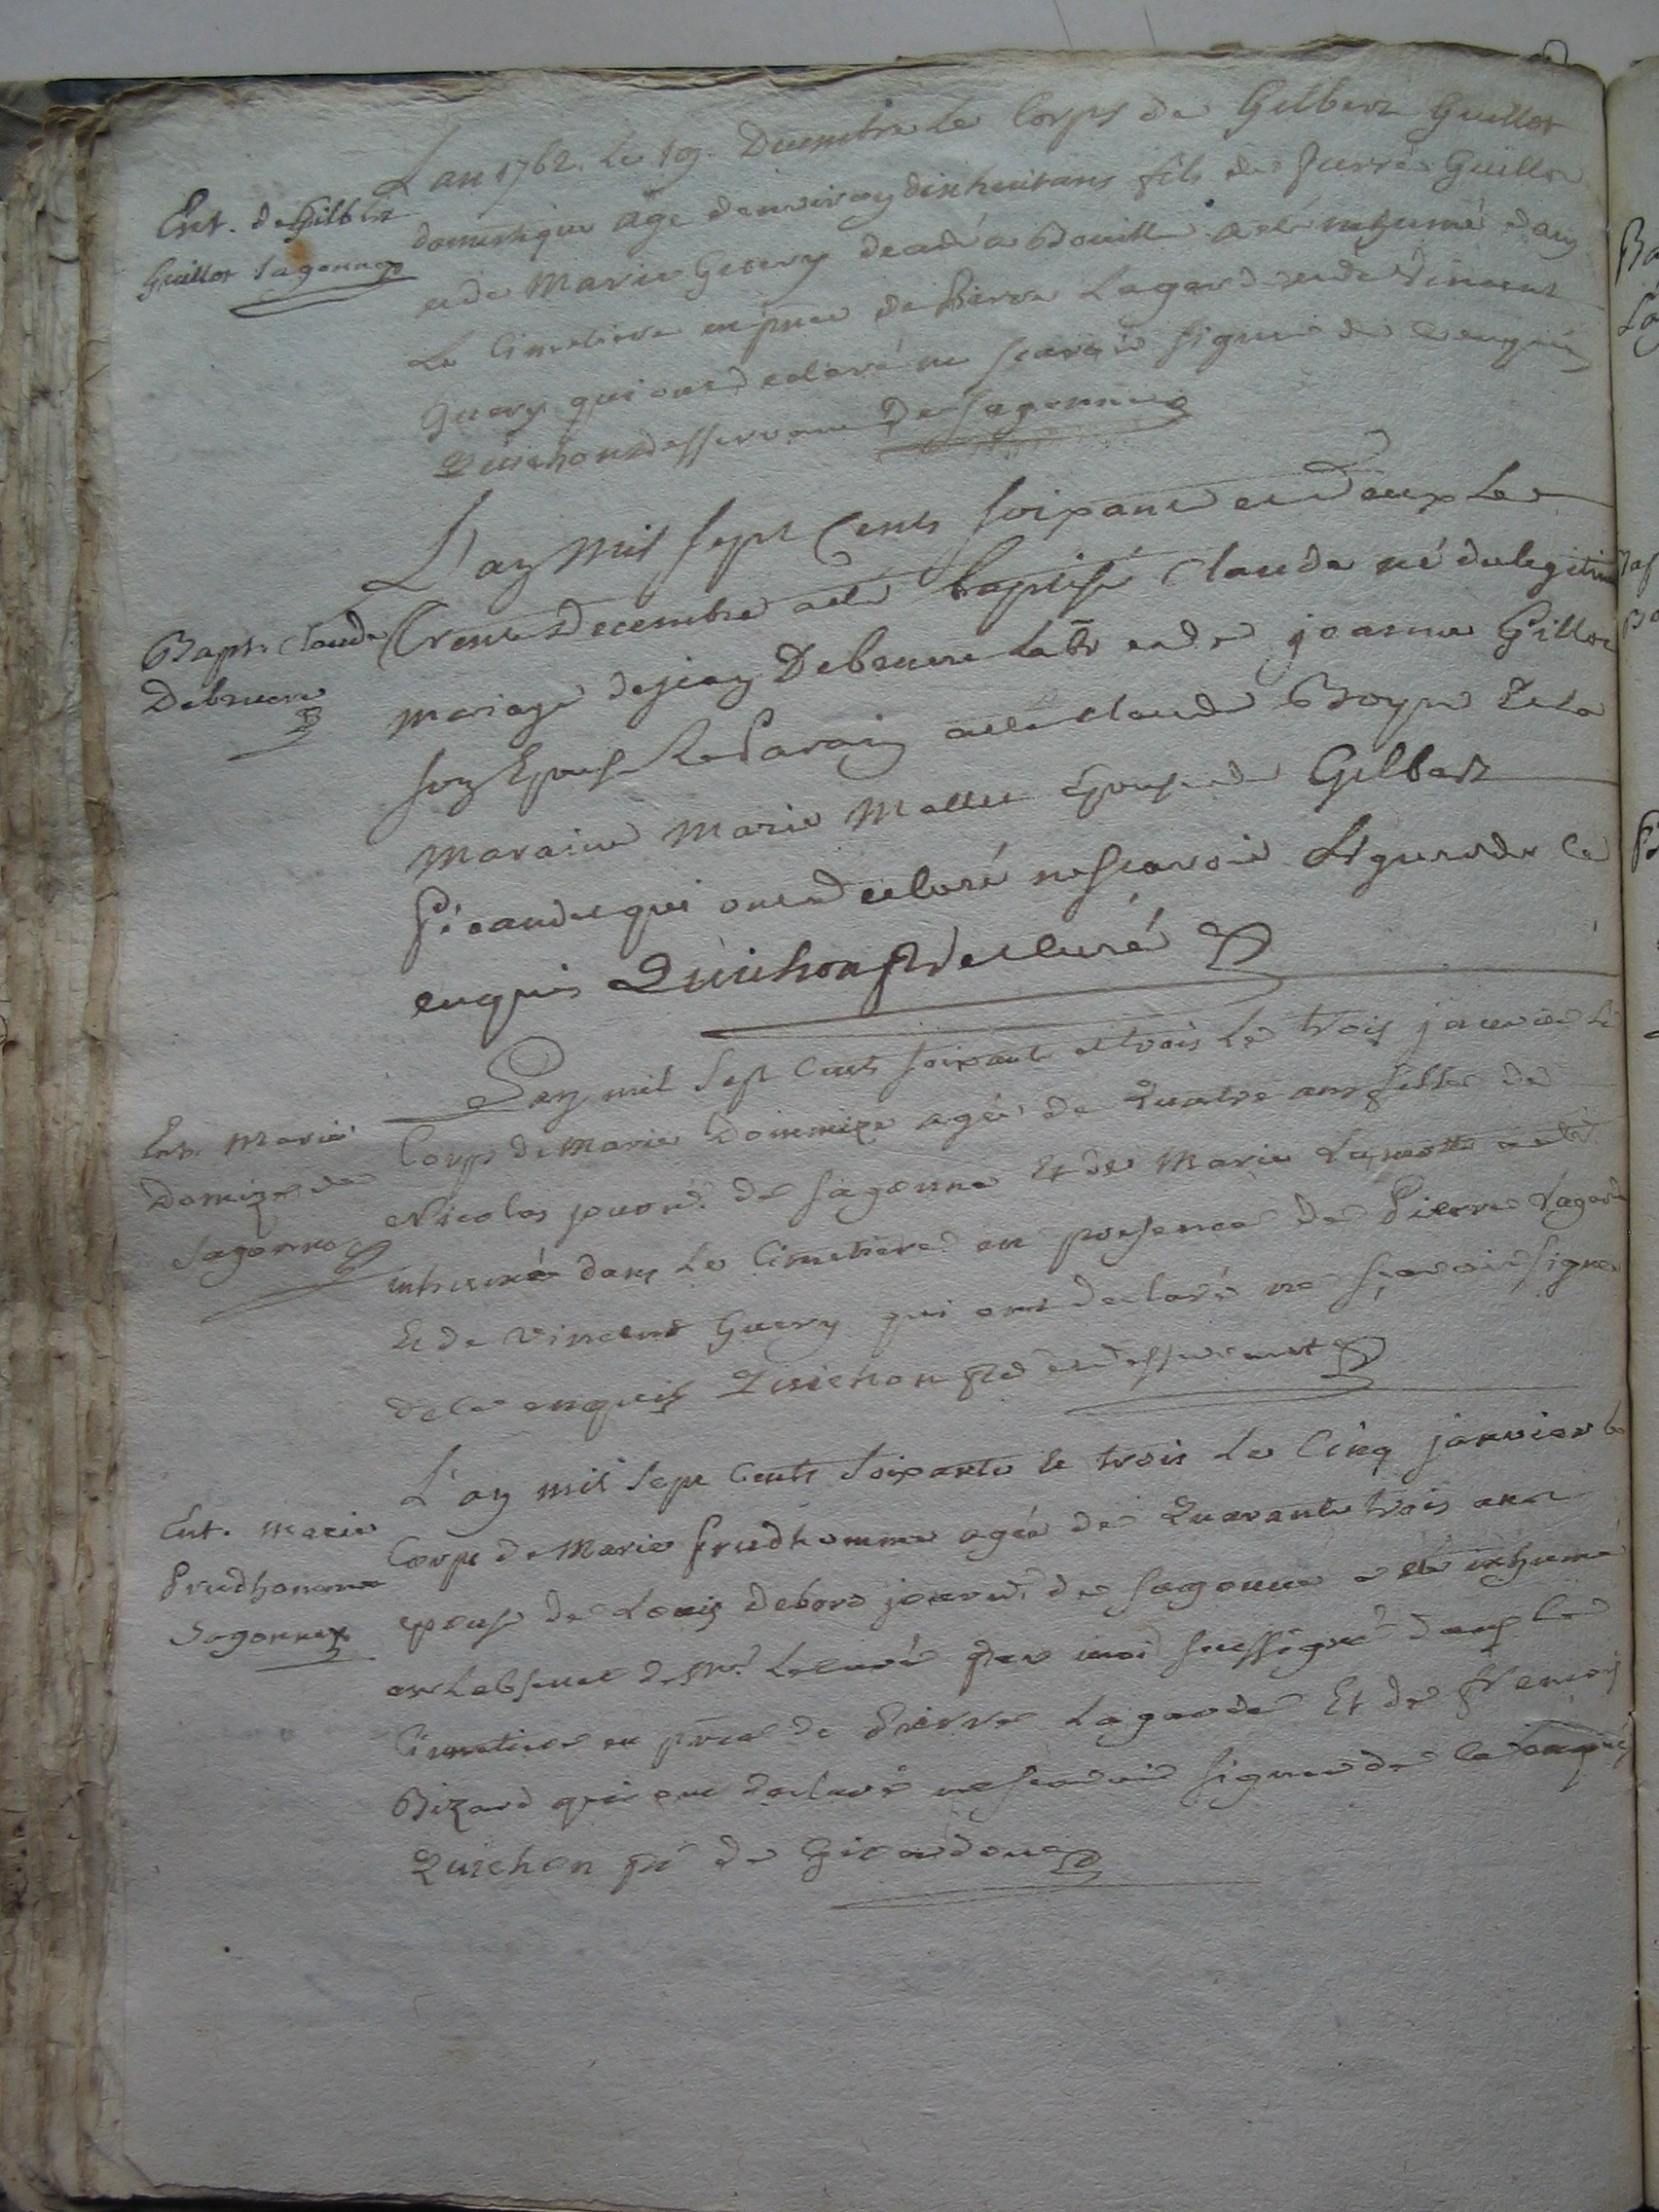 Ent. de Gilbert
Guillot Sagonne
Lan 1762. Le 19. Decembre Le Corps de Gilbert Guillot
domestique age denviron dixhuitans fils de Guillot
et de Marie Guery a eté inhumé dans
Le Cimetiere en pnce de Pierre Lagarde et de Vincent
Guery qui ont declaré ne scavoir signer de ce enquis
Quichon desservant De Sagonne
Bapt. Claude
Debruere
L'an Mil sept Cents soixante et deux Le
trente Decembre a eté baptisé Claude né du legitime
mariage de jean Debruere Labr et de jeanne Gillot
son Epouse Le Parain a eté Claude Boyer Et La
Maraine Marie Mallet Epouse de Gilbert
qui ont declaré ne scavoir signer de ce
enquis Quichon curé
Ent. Marie
Domize de
Sagonne
L'an mil sept Cents soixante et trois Le trois janvier Le
Corps de Marie Dommize agée de Quatre ans fille de
Nicolas journ. de sagonne Et de Marie Lamotte a eté
inhumé dans Le Cimetiere en presence de Pierre Lagarde
Et de Vincent Guery qui ont declaré ne sçavoir signer
de ce enquis Quichon desservant
Ent. Marie
Prudhomme
Sagonne
L'an mil sept Cents soixante et trois Le Cinq janvier le
Corps de Marie Prudhomme agée de Quarante trois ans
epouse de Louis Debord journ. de sagonne a eté inhumé
en Labsence de Mr. Lecuré par moi soussigné dans Le
Cimetiere en pnce de Pierre Lagarde Et de francois
Bizard qui ont declaré ne scavoir signer de ce enquis
Quichon de Givardon